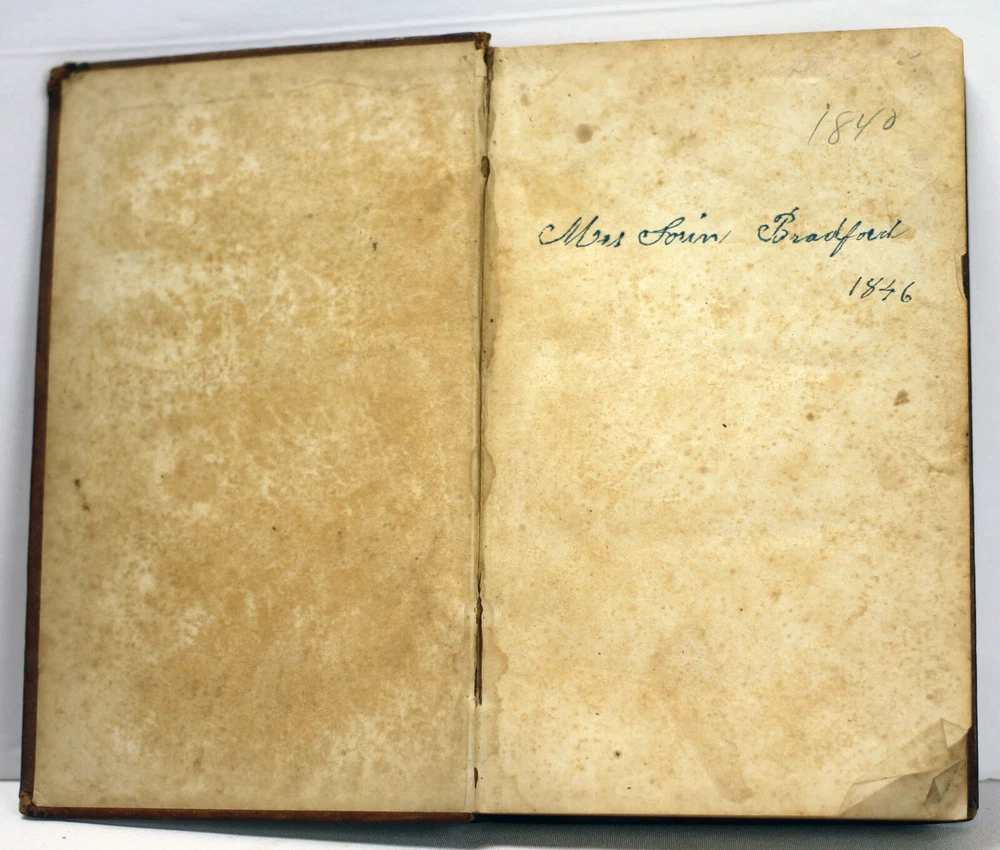 1840
Mrs Sorin Bradford
1846